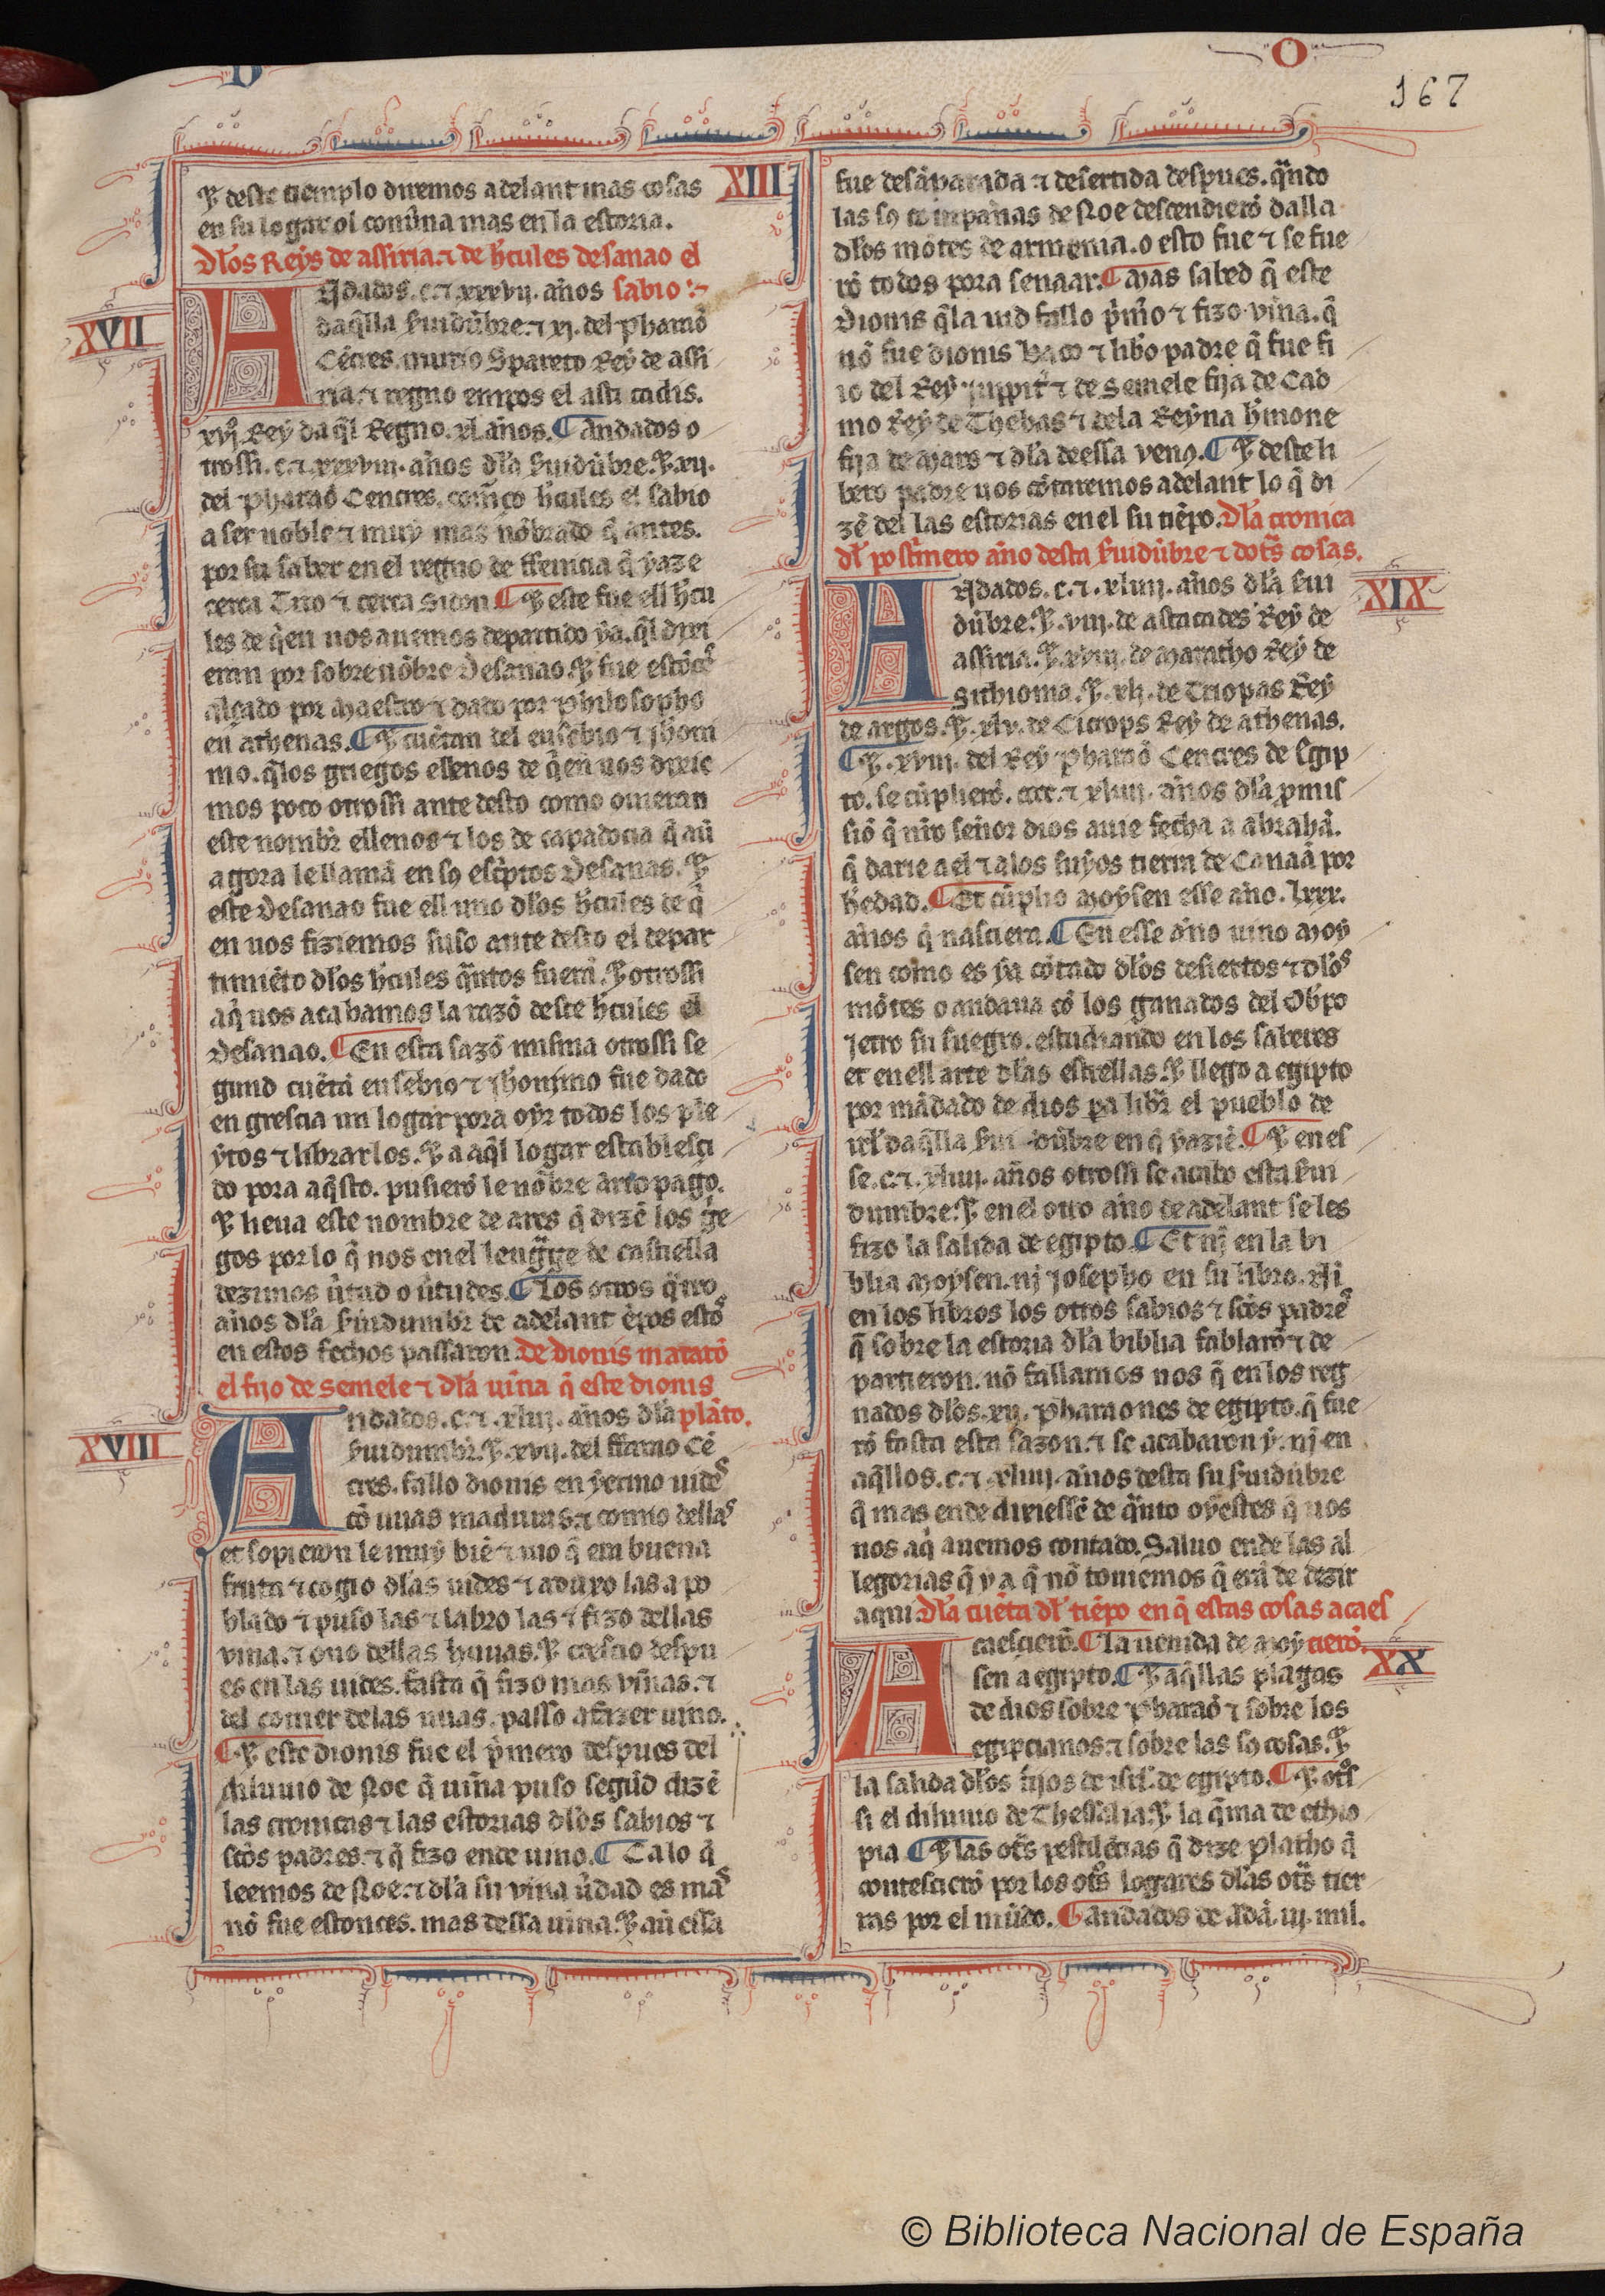 O
167
XIII
Ꞇ deste tiemplo diremos adelant mas cosas
en su logar ol conuina mas en la estoria.
dlos Reys de assiria. ⁊ de hcules desanao el
sabio
XVII
Andados .c. ⁊ xxxvij. años
daqlla seruidũbre. ⁊ xj. del pharaõ
Cẽcres. murio Spareto Rey de assi
ria. ⁊ regno empos el asta cadis.
xvij. Rey daql Regno. xl. años. ¶ Andados o
trossi .c. ⁊ xxxviij. años dla seruidũbre. ⁊ xij.
del pharaõ Cencres. comẽço hcules el sabio
a ser noble ⁊ muy mas nõbrado q̃ antes.
por su saber en el regno de ffenicia q̃ yaze
cerca Tiro ⁊ cerca Sidon ¶ Ꞇ este fue ell hcu
les de q̃en nos auemos departido ya. q̃l dixi
eran por sobrenõbre desanao. Ꞇ fue estõcẽs
alçado por maestro ⁊ dado por philosopho
en athenas. ¶ Ꞇ cuẽtan del eusebio ⁊ jhoni
mo. q̃ los griegos ellenos de q̃en uos dixie
mos poco otrossi ante desto como ouieran
este nombr̃ ellenos ⁊ los de capadocia q̃ aũ
agora le llamã en sꝯ esc̃ptos desanas. Ꞇ
este desanao fue ell uno dlos hcules de q̃
en uos fiziemos suso ante desto el depar
timiẽto dlos hcules q̃ntos fuerã. Ꞇ otrossi
aq̃ uos acabamos la razõ deste hcules el
desanao. ¶ En esta sazõ misma otrossi se
gund cuẽtã eusebio ⁊ jhonimo fue dado
en grescia un logar pora oyr todos los ple
ytos ⁊ librarlos. Ꞇ a aq̃l logar establesçi
do pora aq̃sto. pusierõ le nõbre ariopago.
Ꞇ lieua este nombre de ares q̃ dizẽ los g̃e
gos por lo q̃ nos en el lenguage de castiella
dezimos ũtud o ũtudes. ¶ Los otros q̃tro
años dla seruidumbr̃ de adelant ẽpos estos
en estos fechos passaron. De dionis mataro
el fijo de semele ⁊ dla uiña q̃ este dionis
plãto.
XVIII
Andados .c. ⁊ xliij. años dla
seruidumbr̃. Ꞇ xvij. del ffarao Cẽ
cres. fallo dionis en yermo uides
cõ uuas maduras. ⁊ comio dellas
et sopieron le muy biẽ ⁊ uio q̃ era buena
fruta ⁊ cogio dlas uides ⁊ aduxo las a po
blado ⁊ puso las ⁊ labro las ⁊ fizo dellas
uina. ⁊ ouo dellas huuas. Ꞇ crescio despu
es en las uides. fasta q̃ fizo mas viñas. ⁊
del comer de las uuas. passo a fazer uino.
¶ Ꞇ este dionis fue el p̃mero despues del
diluuio de Noe q̃ uiña puso segũd dizẽ
las cronicas ⁊ las estorias dlos sabios ⁊
sc̃os padres. ⁊ q̃ fizo ende uino. ¶ Ca lo q̃
leemos de Noe. ⁊ dla su viña ũdad es mas
nõ fue estonces. mas dessa uina. Ꞇ aũ essa
fue desãparada ⁊ desertida despues. q̃ndo
las sꝯ compañas de Noe descendierõ dalla
dlos mõtes de armenia. o esto fue ⁊ se fue
rõ todos pora senaar. ¶ Mas sabed q̃ este
dionis q̃ la uid fallo p̃mo ⁊ fizo viña. q̃
nõ fue dionis baco ⁊ libo padre q̃ fue fi
io del Rey juppit̃ ⁊ de Semele fija de Cad
mo Rey de Thebas ⁊ dela Reyna hmione
fija de Mars ⁊ dla deessa venꝯ. ¶ Ꞇ deste li
bero padre uos cõtaremos adelant lo q̃ di
zẽ del las estorias en el su tiẽpo. Dla cronica
dl post̃mero año desta seruidũbre ⁊ dot̃s cosas.
XIX
Andados .c. ⁊ xliiij. años dla serui
dũbre. Ꞇ viij. de astacades Rey de
assiria. Ꞇ xviij. de maratho Rey de
Sithionia. Ꞇ xlj. de Triopas Rey
de argos. Ꞇ xlv. de Cicrops Rey de athenas.
¶ Ꞇ xviij. del Rey pharaõ Cencres de Egip
to. se cũplierõ. cccc. ⁊ xliiij. años dla p̃mis
siõ q̃ nr̃o señor dios auie fecha a abrahã.
q̃ darie a el ⁊ alos suyos tierra de Canaã por
hedad. ¶ Et cũplio Moysen esse año. lxxx.
años q̃ nasciera. ¶ En esse año uino Moy
sen como es ya cõtado dlos desiertos ⁊ dlos
mõtes o andaua cõ los ganados del obpo
Jetro su suegro. estudiando en los saberes
et en ell arte dlas estrellas. Ꞇ llego a egipto
por mãdado de dios pa libr̃ el pueblo de
irl daq̃lla serui dũbre en q̃ yaziẽ. ¶ Ꞇ en es
se .c. ⁊ xliiij. años otrossi se acabo esta serui
dumbre. Ꞇ en el otro año de adelant se les
fizo la salida de egipto ¶ Et nj en la bi
blia Moysen. nj Josepho en su libro. nj
en los libros los otros sabios ⁊ sc̃os padres
q̃ sobre la estoria dla biblia fablarõ ⁊ de
partieron. nõ fallamos nos q̃ en los reg
nados dlos .xij. pharaones de egipto. q̃ fue
rõ fasta esta sazon. ⁊ se acabaron y. nj en
aq̃llos .c. ⁊ xliiij. años desta su seruidũbre
q̃ mas ende dixiessẽ de q̃nto oyestes q̃ uos
nos aq̃ auemos contado. Saluo ende las al
legorias q̃ ya q̃ nõ touiemos q̃ erã de dezir
aqui. Dla cuẽta dl tiẽpo en q̃ estas cosas acaes
cierõ.
XX
Acaescierõ. ¶ La uenida de Moy
sen a egipto. ¶ Ꞇ aq̃llas plagas
de dios sobre pharaõ ⁊ sobre los
egipcianos. ⁊ sobre las sꝯ cosas. Ꞇ
la salida dlos fijos de isrl. de egipto. ¶ Ꞇ ot̃s
si el diluuio de Thessalia. Ꞇ la q̃ma de ethio
pia ¶ Ꞇ las ot̃s pestilẽcias q̃ dize platho q̃
contescierõ por los ot̃s logares dlas ot̃s tier
ras por el mũdo. ¶ Andados de adã. iij. mil.
© Biblioteca Nacional de España